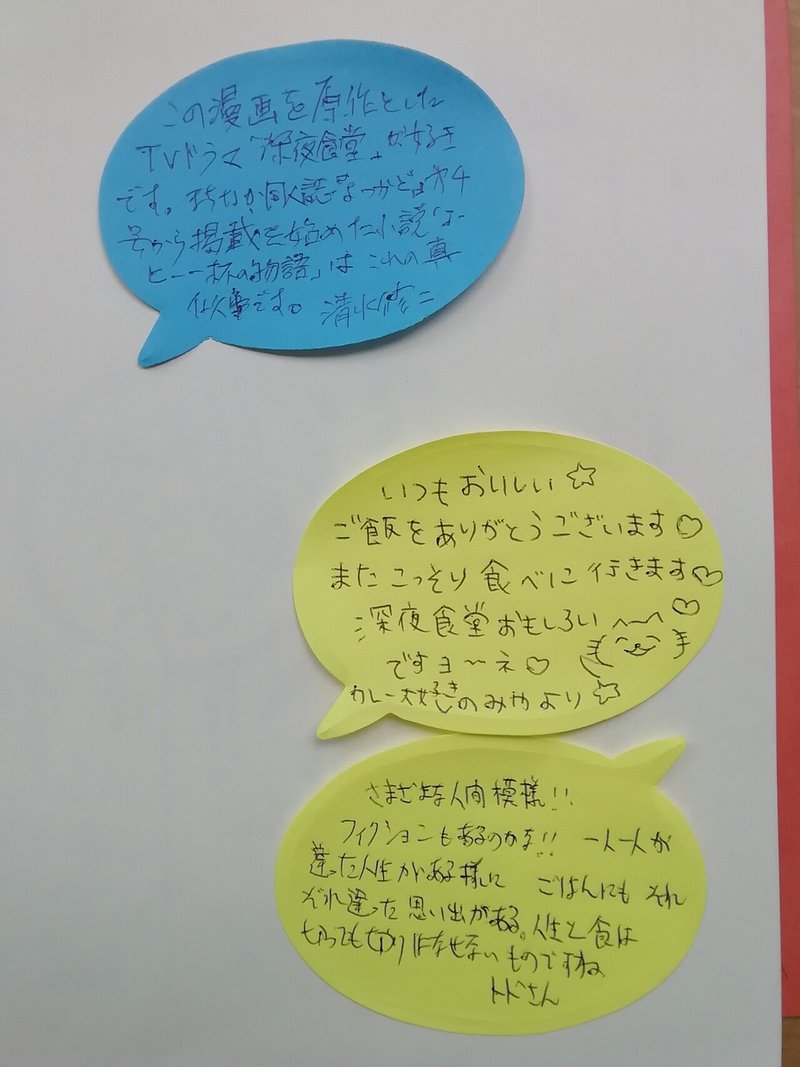 この漫画を原作とした
TVドラマ「深夜食堂」が好き
です。まちなか同人誌「まつかど」オ4
号から掲載を始めた小説「
一杯の物語」は これの真
似事です。 清水修二
いつもおいしい☆
ご飯をありがとうございます♡
またこっそり食べに行きます♡
深夜食堂おもしろい ♡
ですヨ〜ネ♡
カレー大好きのみやより☆
さまざまな人間模様!!
フィクションもあるのかな!! 一人一人が
違った人生がある様に ごはんにも それ
ぞれ違った思い出がある。人生と食は
切っても切りはなせないものですね
トドさん